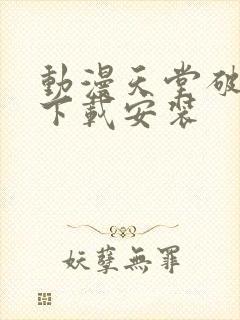 動漫天堂破
下載安裝
妖孽無罪